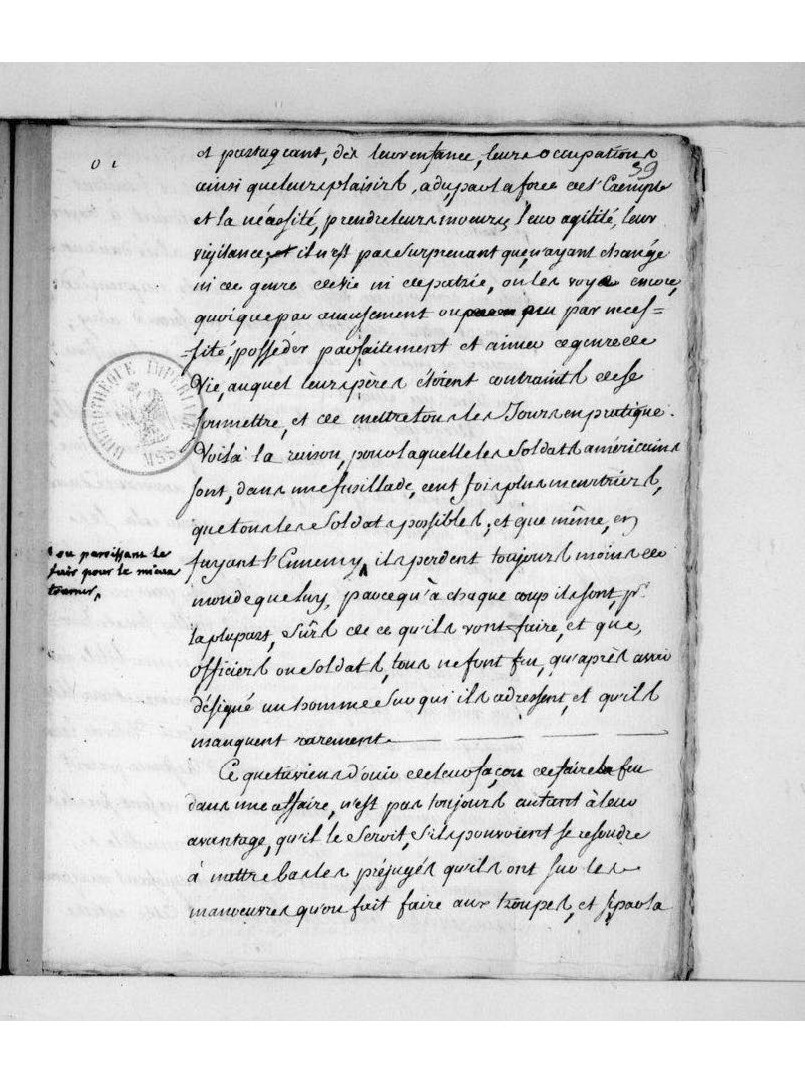 39
et partageant, dès leur enfance, leurs occupations
ainsi que leurs plaisirs, a du, par la force de l'Exemple
et la nécessité, prendre leurs moeurs, leur agilité, leur
vigilance; et il n'est pas surprenant que n'ayant changé
ni de genre de vie ni de patrie, on les voye encore,
quoique par amusement ou peu par neces=
=sité, posséder parfaitement et aimer ce genre de
Vie, auquel leurs pères étoient contraints de se
soumettre, et de mettre tous les Jours en pratique.
Voilà la raison, pour laquelle les Soldats américains
sont, dans une fusillade, cent fois plus meurtriers,
que tous les Soldats possibles; et que même, en
fuyant l'Ennemy, ils perdent toujours moins de
monde que luy, parce qu'à chaque coup ils sont, pr.
la plupart, sûrs de ce qu'ils vont faire, et que,
officiers ou Soldats, tous ne font feu, qu'après avoir
désigné un homme sur qui ils adressent, et qu'ils
manquent rarement.
ou paroissant le
fuir pour le mieux
tourner,
Ce que tu viens d'ouir de leur façon de faire feu
dans une affaire, n'est pas toujours autant à leur
avantage, qu'il le Seroit, s'ils pouvoient se resoudre
à mettre bas les préjugés qu'ils ont sur les
manoeuvres qu'on fait faire aux troupes, et si par la
BIBLIOTHÈQUE IMPÉRIALE
MSS.